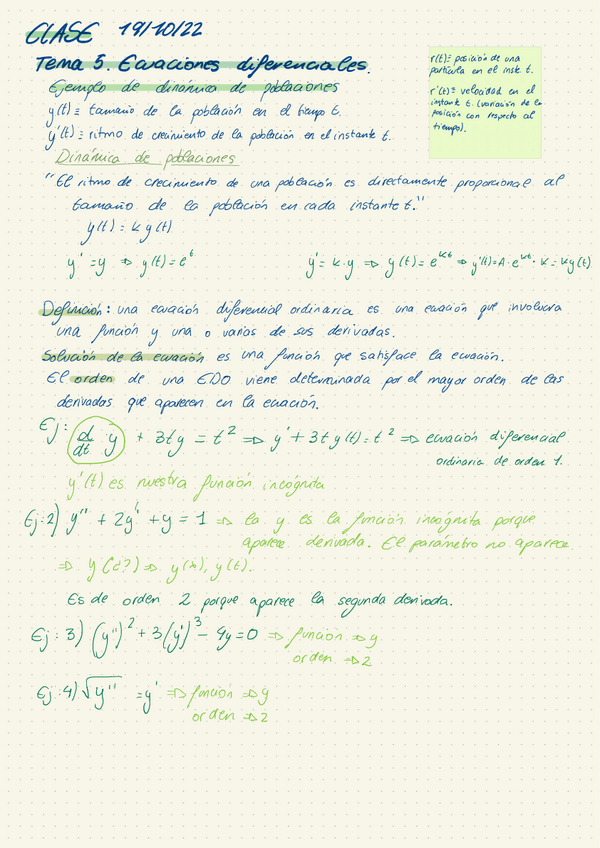 CLASE 19/10/22
Tema 5. Ecuaciones diferenciales.
Ejemplo de dinámica de poblaciones
y(t) ≡ tamaño de la población en el tiempo t.
y'(t) ≡ ritmo de crecimiento de la población en el instante t.
r(t) ≡ posición de una
partícula en el inst. t.
r'(t) ≡ velocidad en el
instante t. (variación de la
posición con respecto al
tiempo).
Dinámica de poblaciones
"El ritmo de crecimiento de una población es directamente proporcional al
tamaño de la población en cada instante t."
y(t) = k y(t)
y' = y ⇒ y(t) = e^t
y' = k · y ⇒ y(t) = e^kt ⇒ y'(t) = A · e^kt · k = ky(t)
Definición: una ecuación diferencial ordinaria es una ecuación que involucra
una función y una o varias de sus derivadas.
Solución de la ecuación es una función que satisface la ecuación.
El orden de una EDO viene determinada por el mayor orden de las
derivadas que aparecen en la ecuación.
Ej: d/dt y + 3ty = t² ⇒ y' + 3t y(t) = t² ⇒ ecuación diferencial
ordinaria de orden 1.
y'(t) es nuestra función incógnita
Ej: 2) y'' + 2y' + y = 1 ⇒ la y es la función incógnita porque
aparece derivada. El parámetro no aparece.
⇒ y(¿?) ⇒ y(x), y(t).
Es de orden 2 porque aparece la segunda derivada.
Ej: 3) (y'')² + 3(y')³ - 4y = 0 ⇒ función ⇒ y
orden ⇒ 2
Ej: 4) √y'' = y' ⇒ función ⇒ y
orden ⇒ 2